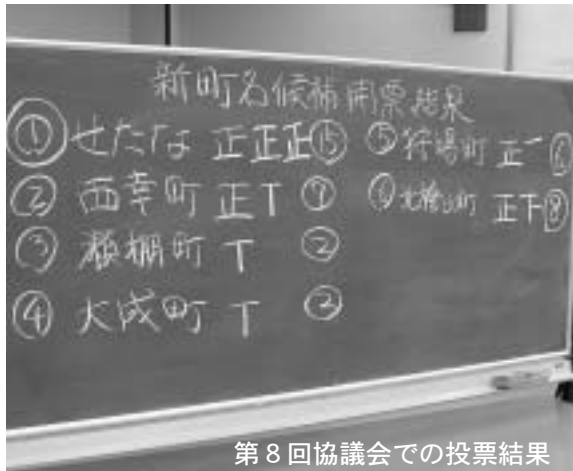 新町名候補開票結果
① せたな 正正正 ⑮
② 西幸町 正T ⑦
③ 瀬棚町 T ②
④ 大成町 T ②
⑤ 狩場町 正一 ⑥
⑥ 北檜山町 正下 ⑧
第8回協議会での投票結果